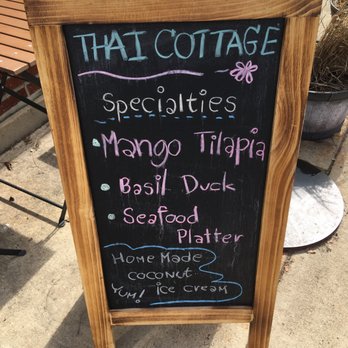 THAI COTTAGE
Specialties
• Mango Tilapia
• Basil Duck
• Seafood
Platter
HOME MADE
COCONUT
YUM! ICE CREAM